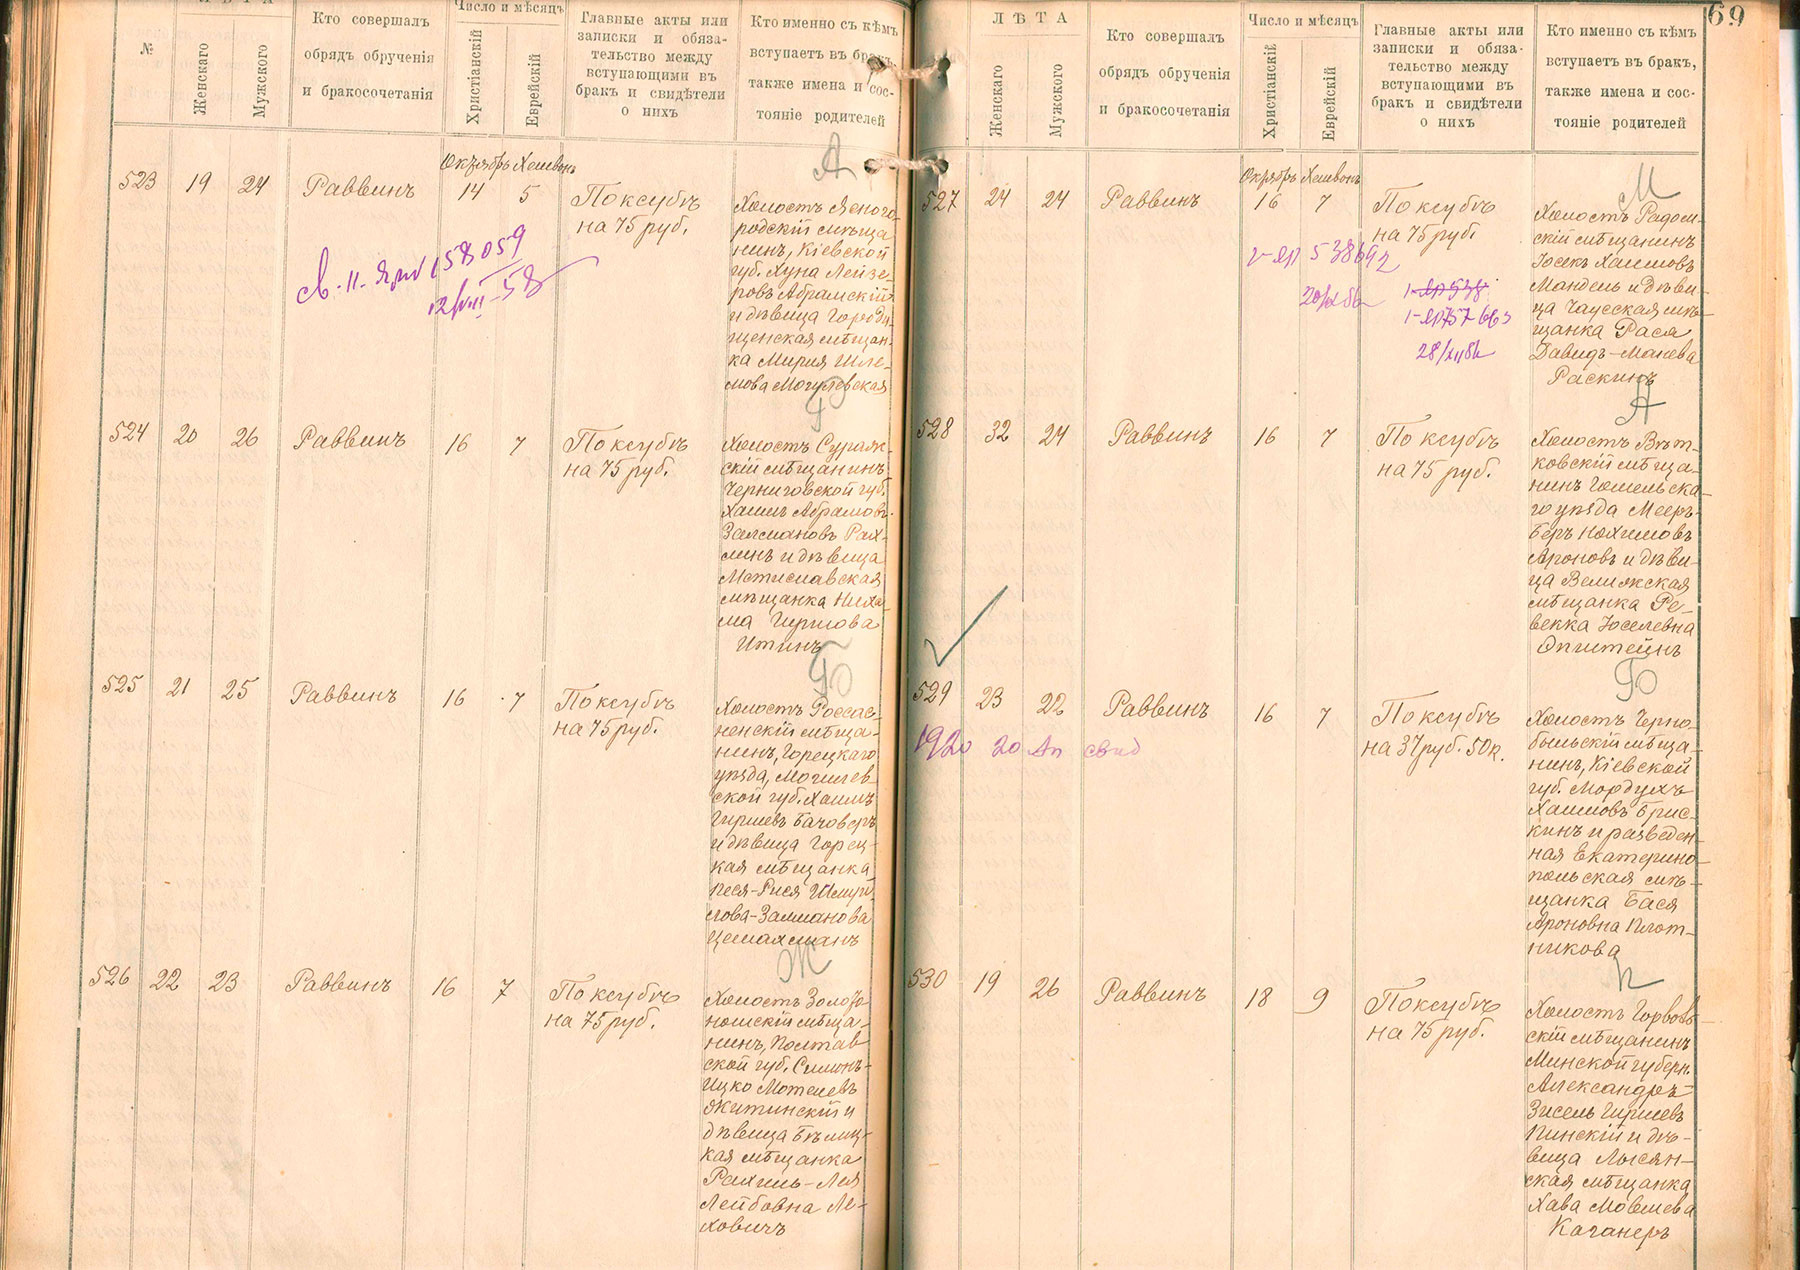 ЛѢТА
№
Женскаго
Мужского
Кто совершалъ
обрядъ обрученія
и бракосочетанія
Число и мѣсяцъ
Христіанскій
Еврейскій
Главные акты или
записки и обяза-
тельство между
вступающими въ
бракъ и свидѣтели
о нихъ
Кто именно съ кѣмъ
вступаетъ въ бракъ,
также имена и сос-
тояніе родителей
А
Октябрь Хешвонъ
523 19 24 Раввинъ 14 5
По ксубѣ
на 75 руб.
Холостъ Ясного-
родскій мѣща
нинъ, Кіевской
губ. Хуна Лейзе-
ровъ Абрамскій
и дѣвица Городи-
щенская мѣщан-
ка Мирия Шле-
мова Могилевская
св. II. 158059
12/VIII-58
Р
524 20 26 Раввинъ 16 7
По ксубѣ
на 75 руб.
Холостъ Сураж-
скій мѣщанинъ
Черниговской губ.
Хаимъ Абрамовъ-
Залмановъ Рах-
линъ и дѣвица
Мстиславская
мѣщанка Ниха-
ма Гиршова
Итинъ
Б
525 21 25 Раввинъ 16 7
По ксубѣ
на 75 руб.
Холостъ Россас-
ненскій мѣща-
нинъ, Горецкаго
уѣзда, Могилев-
ской губ. Хаимъ
Гиршевъ Баховеръ
и дѣвица Горец-
кая мѣщанка
Песя-Рися
Залманова
Цемахманъ
Ж
526 22 23 Раввинъ 16 7
По ксубѣ
на 75 руб.
Холостъ Золото-
ношскій мѣща-
нинъ, Полтав-
ской губ. Симонъ-
Ицко Мотелевъ
Житинскій и
дѣвица Бѣлиц-
кая мѣщанка
Рахиль-Лея
Лейбовна Ле-
ховичъ
69
ЛѢТА
Женскаго
Мужского
Кто совершалъ
обрядъ обрученія
и бракосочетанія
Число и мѣсяцъ
Христіанскій
Еврейскій
Главные акты или
записки и обяза-
тельство между
вступающими въ
бракъ и свидѣтели
о нихъ
Кто именно съ кѣмъ
вступаетъ въ бракъ,
также имена и сос-
тояніе родителей
М
Октябрь Хешвонъ
527 24 24 Раввинъ 16 7
По ксубѣ
на 75 руб.
Холостъ Радом-
скій мѣщанинъ
Іосекъ Хаимовъ
Мандель и дѣви-
ца Чаусская мѣ-
щанка Рася
Давидъ-Манева
Раскинъ
А
528 32 24 Раввинъ 16 7
По ксубѣ
на 75 руб.
Холостъ Вѣт-
ковскій мѣща-
нинъ Гомельска-
го уѣзда Мееръ-
Беръ Нохимовъ
Ароновъ и дѣви-
ца Велижская
мѣщанка Ре-
векка Іоселевна
Эпштейнъ
Б
529 23 22 Раввинъ 16 7
По ксубѣ
на 37 руб. 50 к.
1920 20 Ап свид
Холостъ Черно-
быльскій мѣща-
нинъ, Кіевской
губ. Мордухъ
Хаимовъ Брис-
кинъ и разведен-
ная Екатерино-
польская мѣ-
щанка Бася
Ароновна Плот-
никова
П
530 19 26 Раввинъ 18 9
По ксубѣ
на 75 руб.
Холостъ Горволь-
скій мѣщанинъ
Минской губерн.
Александръ-
Зисель Гиршевъ
Пинскій и дѣ-
вица Лысян-
ская мѣщанка
Хава Мовшева
Каганеръ